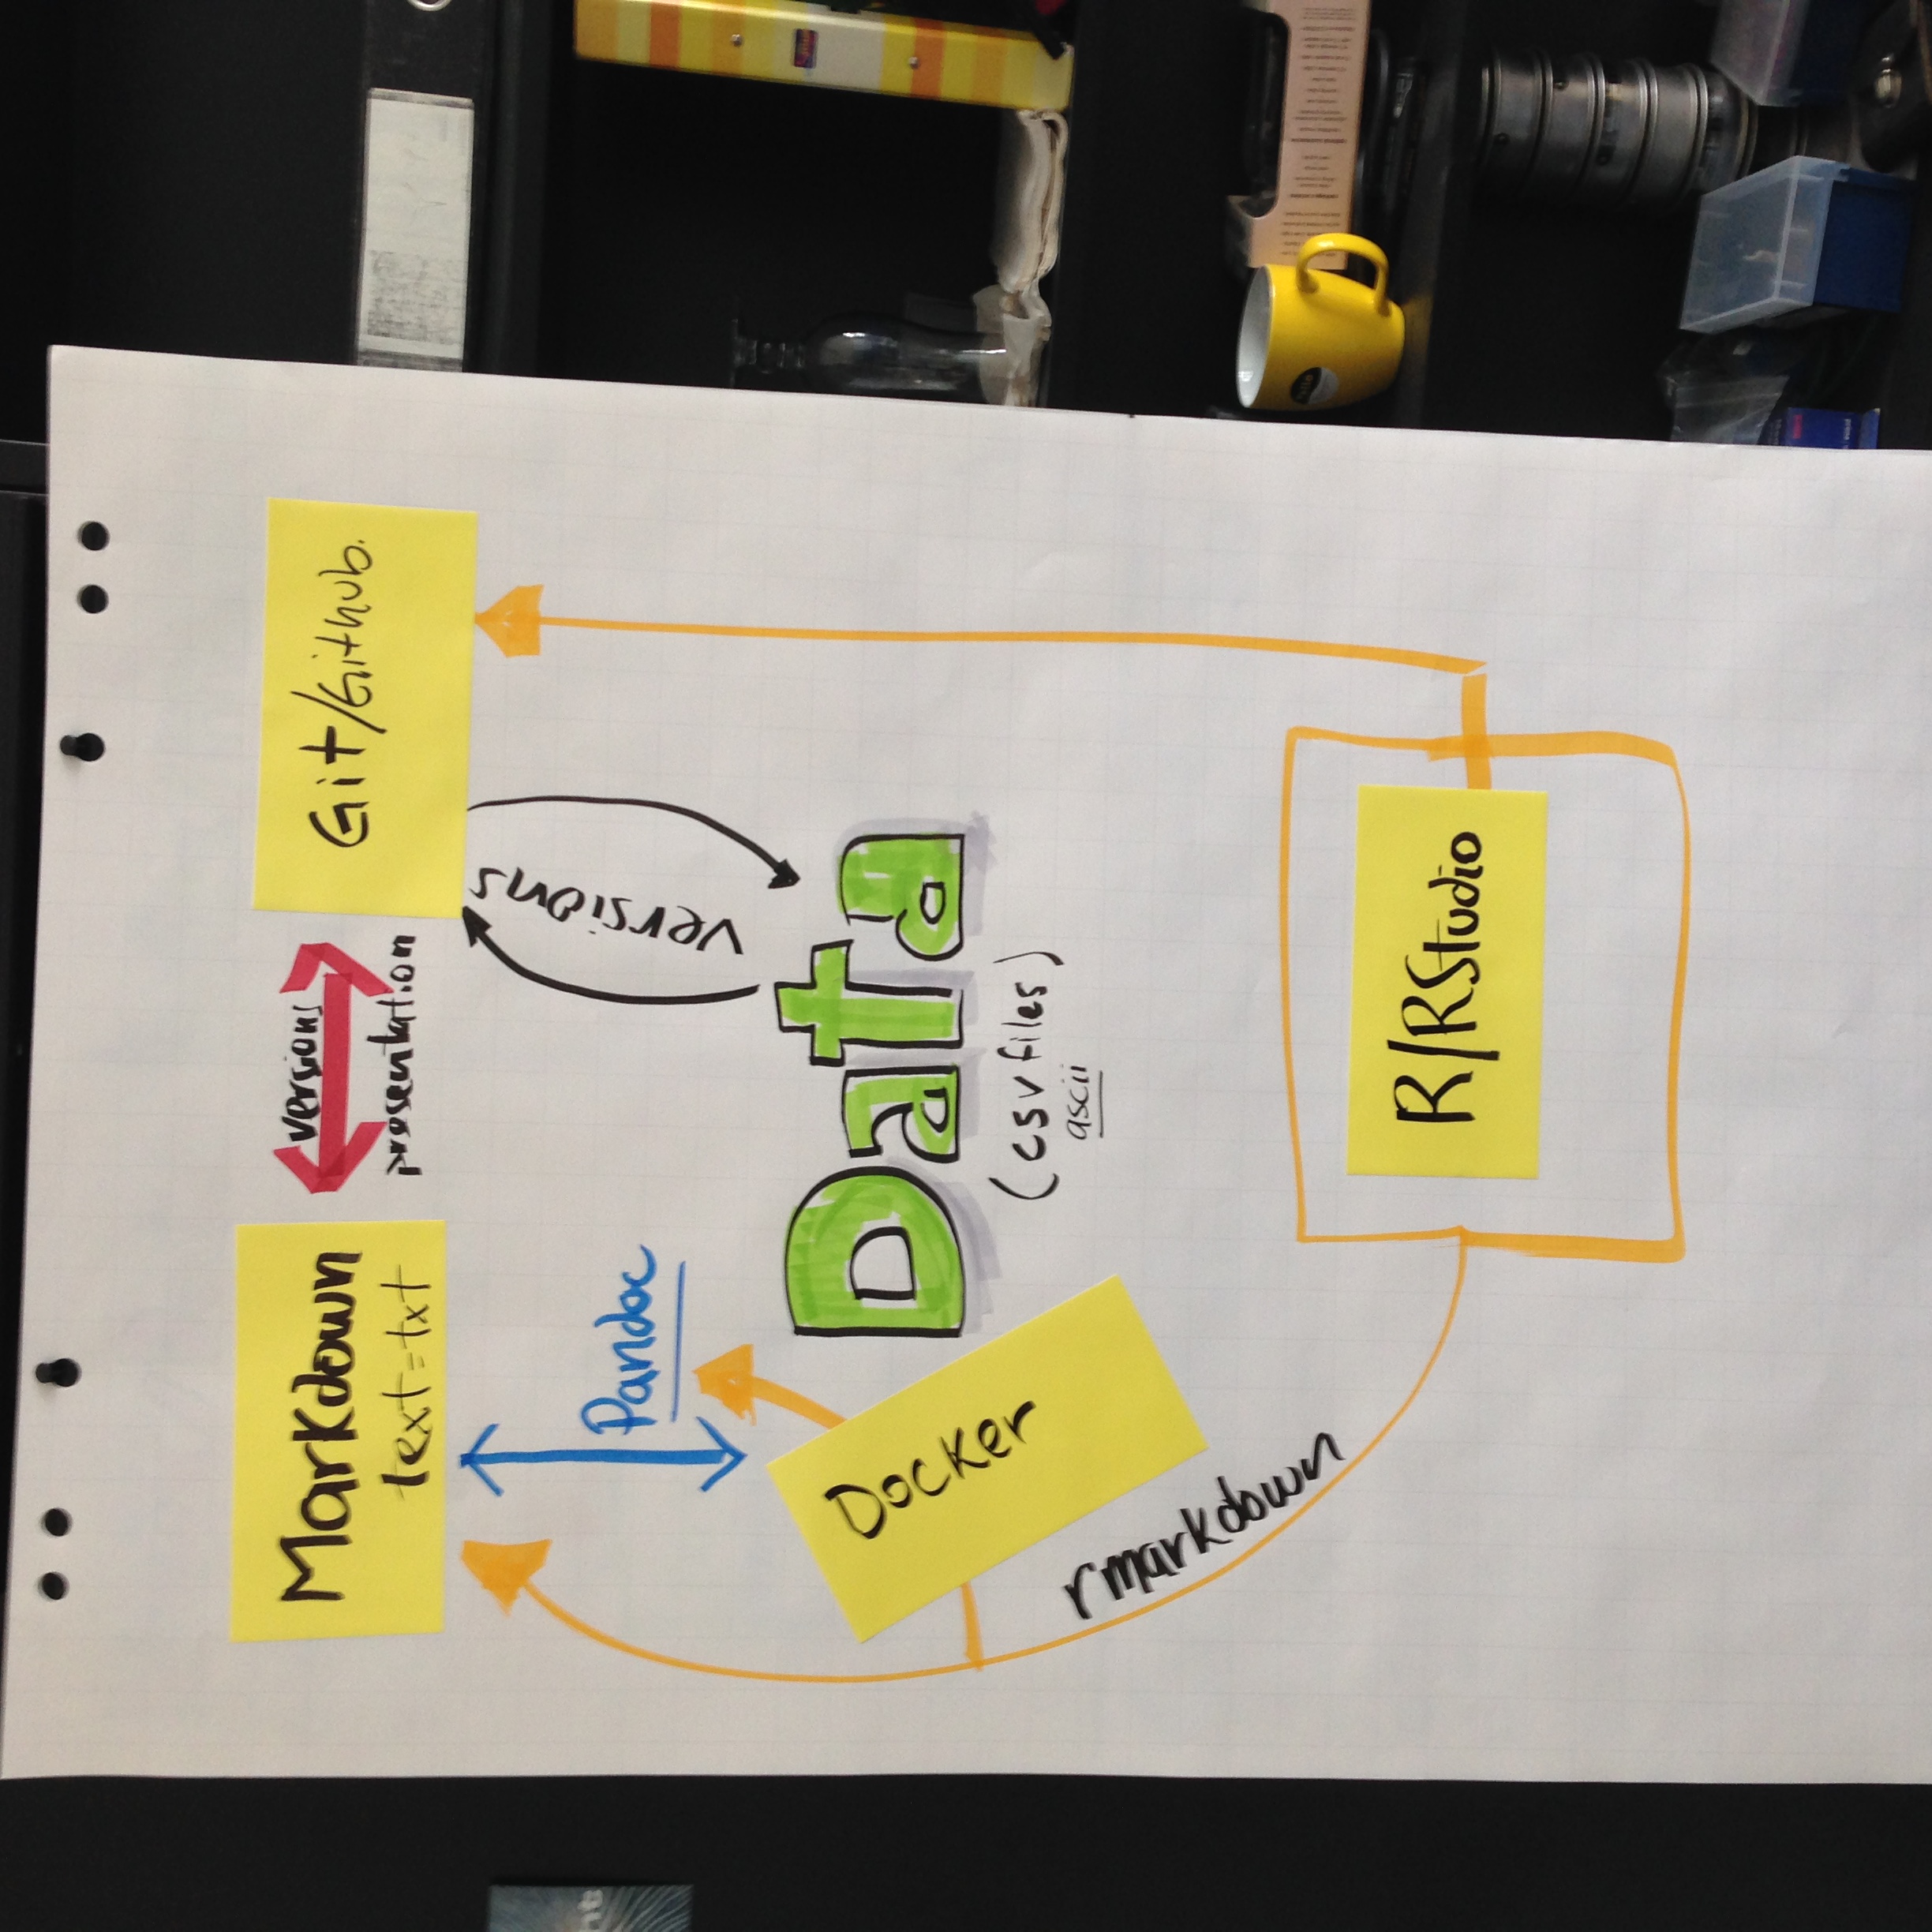 Markdown
text=txt
versions
presentation
Git/Github.
Pandoc
versions
Docker
Data
(csv files)
ascii
rmarkdown
R/RStudio